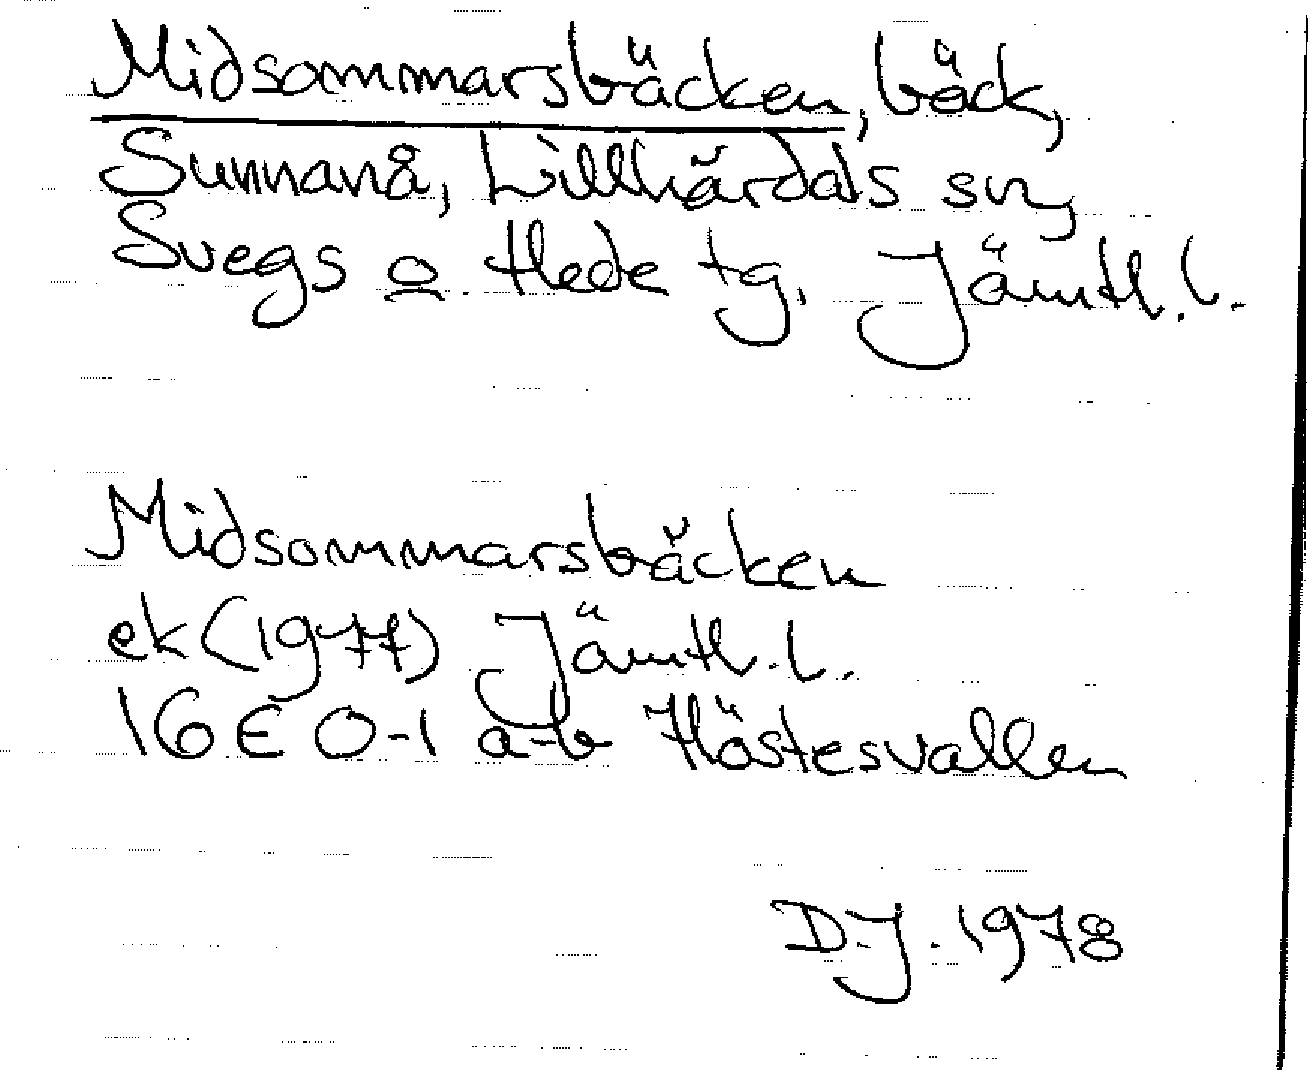 Midsommarsbäcken, bäck,
Sunnanå, Lillhärdals sn,
Svegs o Hede tg, Jämtl. l.
Midsommarsbäcken
ek (1977) Jämtl. l.
16E 0-1 a-b Höstesvallen
D.J. 1978